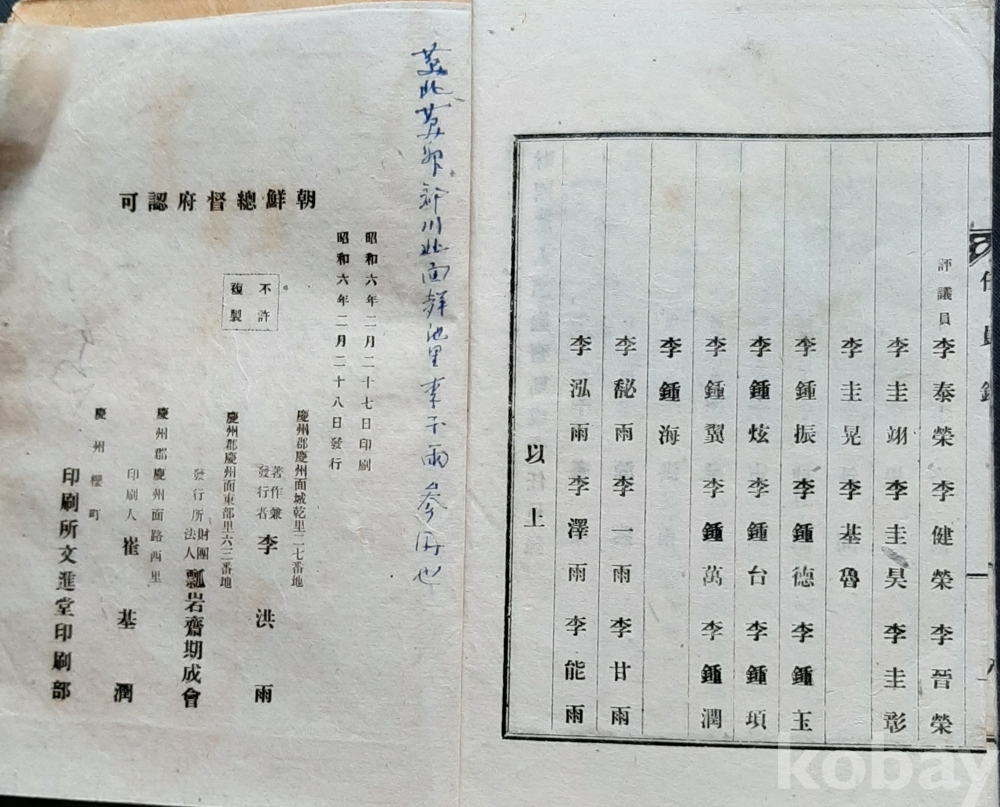 評議員 李泰榮 李健榮 李晉榮
李圭翊 李圭昊 李圭彰
李圭晃 李基魯
李鍾振 李鍾德 李鍾玉
李鍾炫 李鍾台 李鍾頊
李鍾翼 李鍾萬 李鍾潤
李鍾海
李馝雨 李一雨 李甘雨
李泓雨 李澤雨 李能雨
以上
川北面 池里李 雨 也
朝鮮總督府認可
昭和六年二月二十七日印刷
昭和六年二月二十八日發行
不許
複製
慶州郡慶州面城乾里二七番地
著作兼
發行者 李洪雨
慶州郡慶州面東部里六三番地
發行所 財團法人 瓢岩齋期成會
慶州郡慶州面路西里
印刷人 崔基潤
慶州櫻町
印刷所文進堂印刷部
kobay